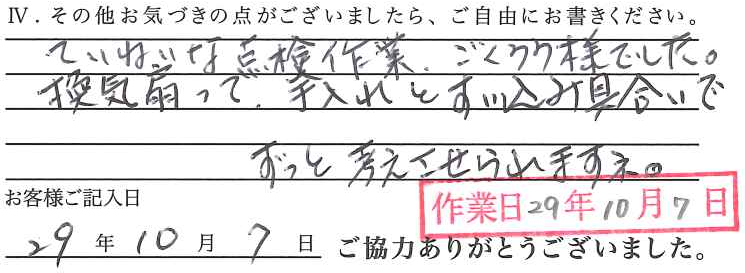 Ⅳ．その他お気づきの点がございましたら、ご自由にお書きください。
ていねいな点検作業、ごくろう様でした。
換気扇って、手入れとすい込み具合いで
ずっと考えさせられますネ。
お客様ご記入日
作業日29年10月7日
29年10月7日 ご協力ありがとうございました。